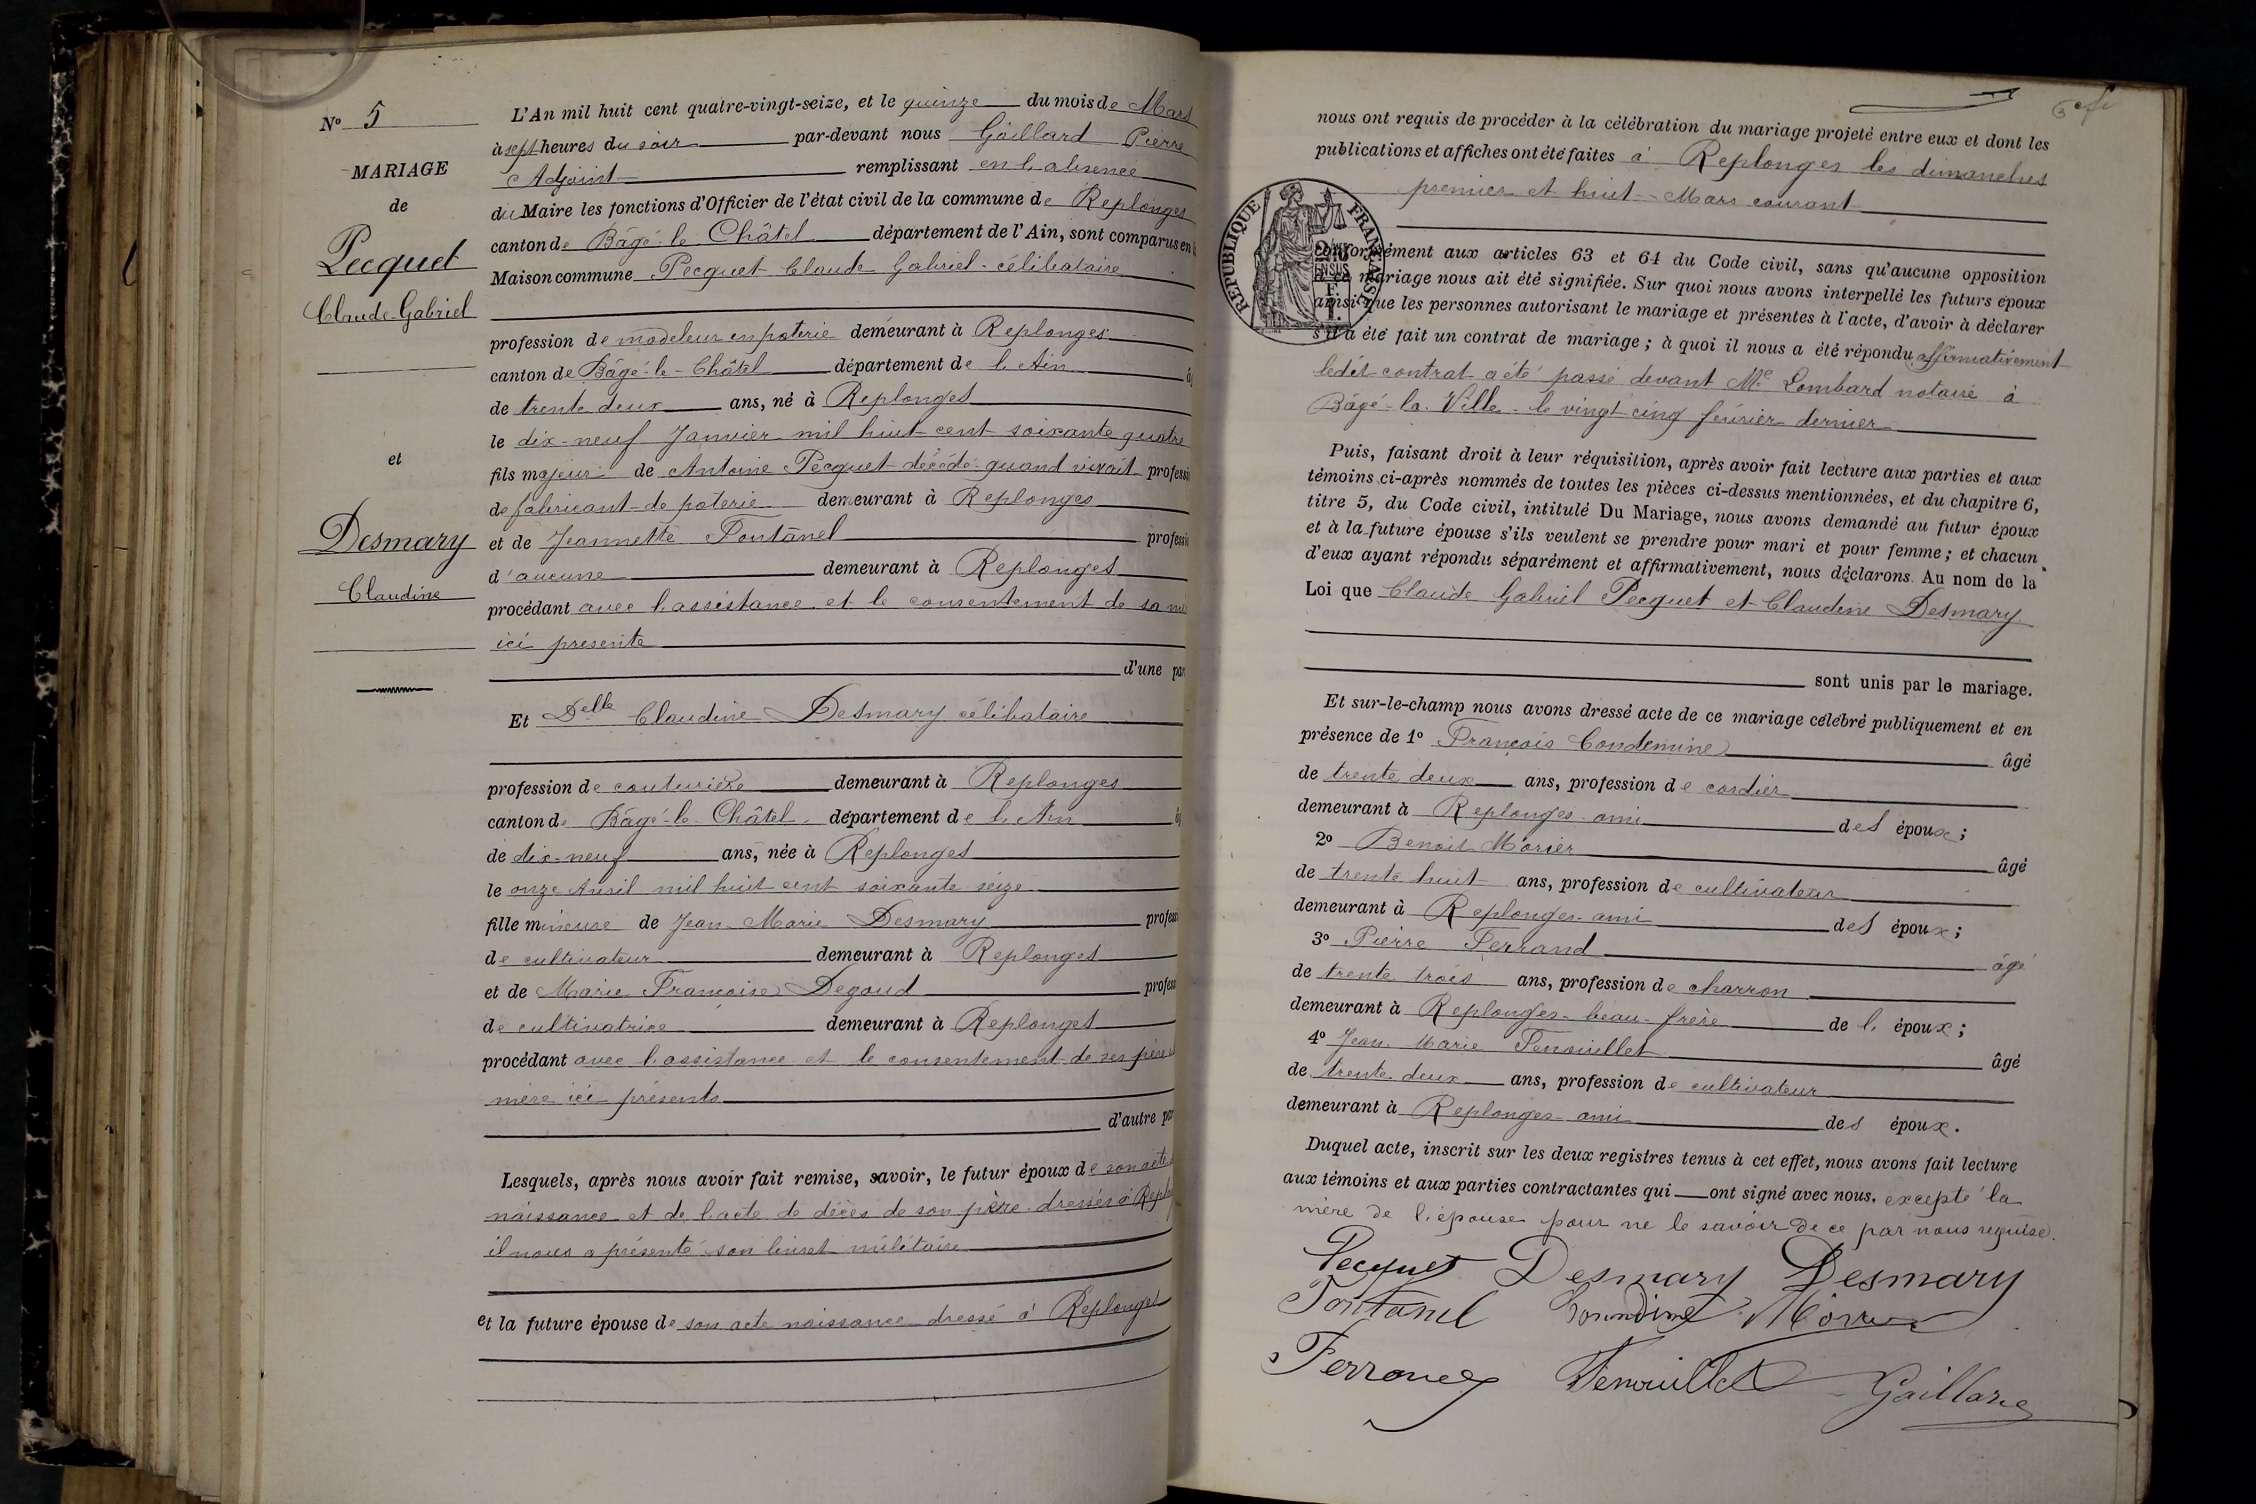 Nº 5
MARIAGE
de
Pecquet
Claude-Gabriel
et
Desmary
Claudine
L'An mil huit cent quatre-vingt-seize, et le quinze du mois de Mars
à sept heures du soir par-devant nous Gaillard Pierre
Adjoint remplissant en l'absence
du Maire les fonctions d'Officier de l'état civil de la commune de Replonges
canton de Bâgé-le-Châtel département de l'Ain, sont comparus en la
Maison commune Pecquet Claude Gabriel célibataire
profession de modeleur en poterie demeurant à Replonges
canton de Bâgé-le-Châtel département de l'Ain
de trente deux ans, né à Replonges
le dix-neuf Janvier mil huit cent soixante quatre
fils majeur de Antoine Pecquet décédé quand vivait profession
de fabricant de poterie demeurant à Replonges
et de Jeannette Fontanel profession
d'aucune demeurant à Replonges
procédant avec l'assistance et le consentement de sa mère
ici présente
d'une par
Et Delle Claudine Desmary célibataire
profession de couturière demeurant à Replonges
canton de Bâgé-le-Châtel département de l'Ain
de dix-neuf ans, née à Replonges
le onze Avril mil huit cent soixante seize
fille mineure de Jean-Marie Desmary profess
de cultivateur demeurant à Replonges
et de Marie Françoise Degoud profess
de cultivatrice demeurant à Replonges
procédant avec l'assistance et le consentement de ses père et
mère ici présents
d'autre par
Lesquels, après nous avoir fait remise, savoir, le futur époux de son acte
naissance et de l'acte de décès de son père dressés à Replo
il nous a présenté son livret militaire
et la future épouse de son acte naissance dressé à Replonges
nous ont requis de procéder à la célébration du mariage projeté entre eux et dont les
publications et affiches ont été faites à Replonges les dimanches
premier et huit Mars courant
RÉPUBLIQUE FRANÇAISE
conformément aux articles 63 et 64 du Code civil, sans qu'aucune opposition
à ce mariage nous ait été signifiée. Sur quoi nous avons interpellé les futurs époux
ainsi que les personnes autorisant le mariage et présentes à l'acte, d'avoir à déclarer
s'il a été fait un contrat de mariage ; à quoi il nous a été répondu affirmativement
ledit contrat a été passé devant Me Lombard notaire à
Bâgé-la-Ville le vingt cinq février dernier
Puis, faisant droit à leur réquisition, après avoir fait lecture aux parties et aux
témoins ci-après nommés de toutes les pièces ci-dessus mentionnées, et du chapitre 6,
titre 5, du Code civil, intitulé Du Mariage, nous avons demandé au futur époux
et à la future épouse s'ils veulent se prendre pour mari et pour femme ; et chacun
d'eux ayant répondu séparément et affirmativement, nous déclarons Au nom de la
Loi que Claude Gabriel Pecquet et Claudine Desmary
sont unis par le mariage.
Et sur-le-champ nous avons dressé acte de ce mariage célébré publiquement et en
présence de 1º François Condemine âgé
de trente deux ans, profession de cordier
demeurant à Replonges ami des époux ;
2º Benoit Morier âgé
de trente huit ans, profession de cultivateur
demeurant à Replonges ami des époux ;
3º Pierre Ferrand âgé
de trente trois ans, profession de charron
demeurant à Replonges beau-frère de l' époux ;
4º Jean Marie Fenouillet âgé
de trente deux ans, profession de cultivateur
demeurant à Replonges ami des époux.
Duquel acte, inscrit sur les deux registres tenus à cet effet, nous avons fait lecture
aux témoins et aux parties contractantes qui ont signé avec nous. excepté la
mère de l'épouse pour ne le savoir de ce par nous requise.
Pecquet Desmary Desmary
Fontanel Condemine Morier
Ferrand Fenouillet Gaillard